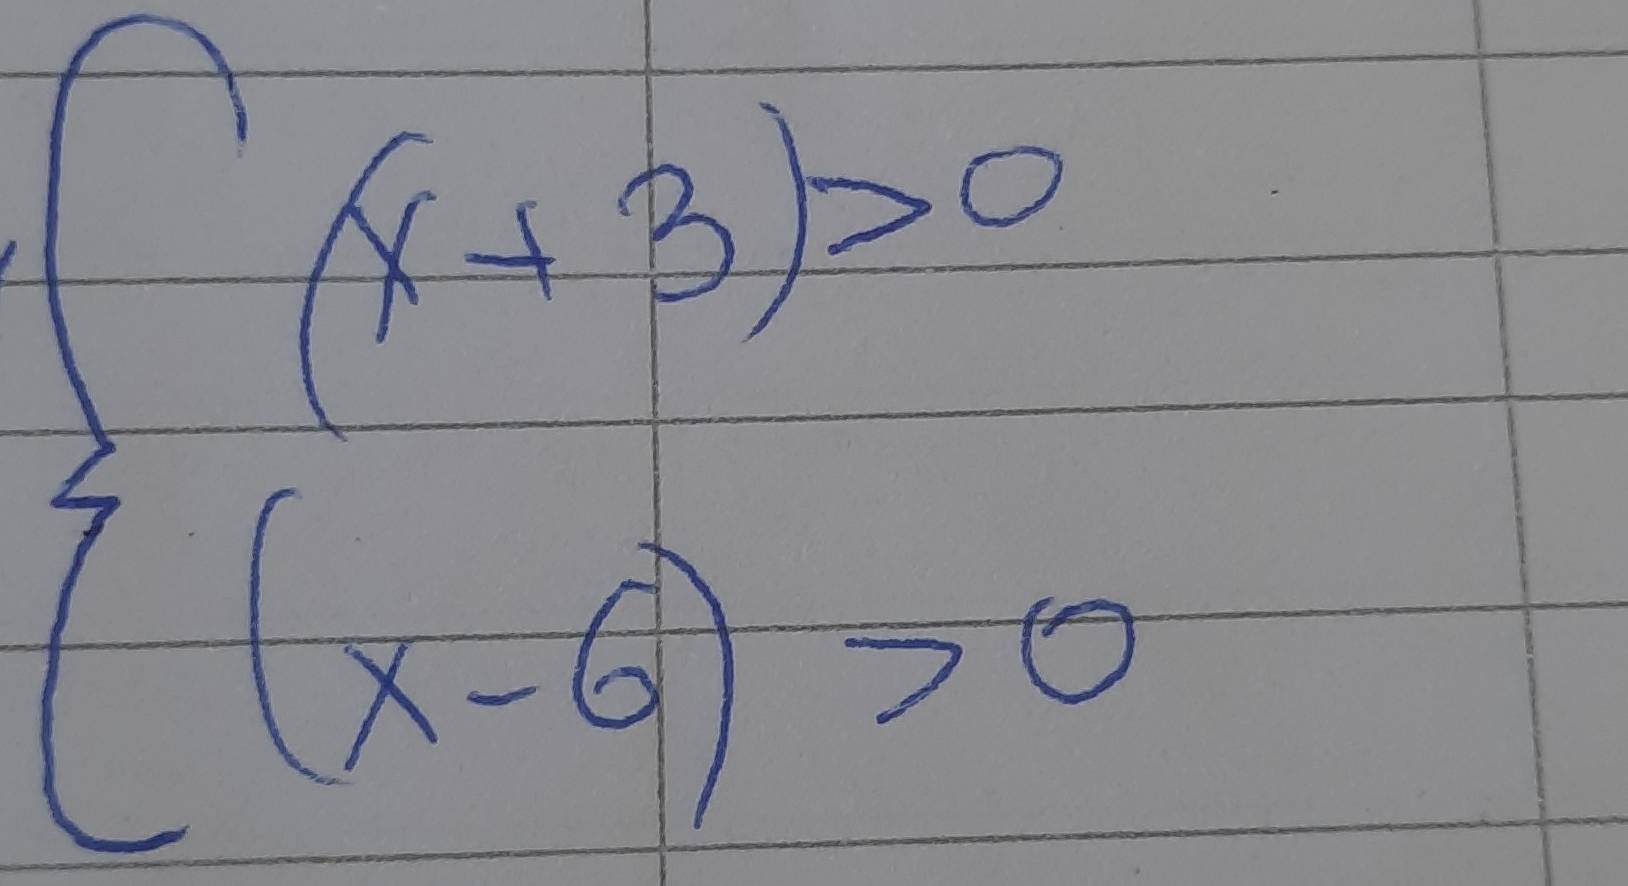 (x+3)>0
(x-6)>0